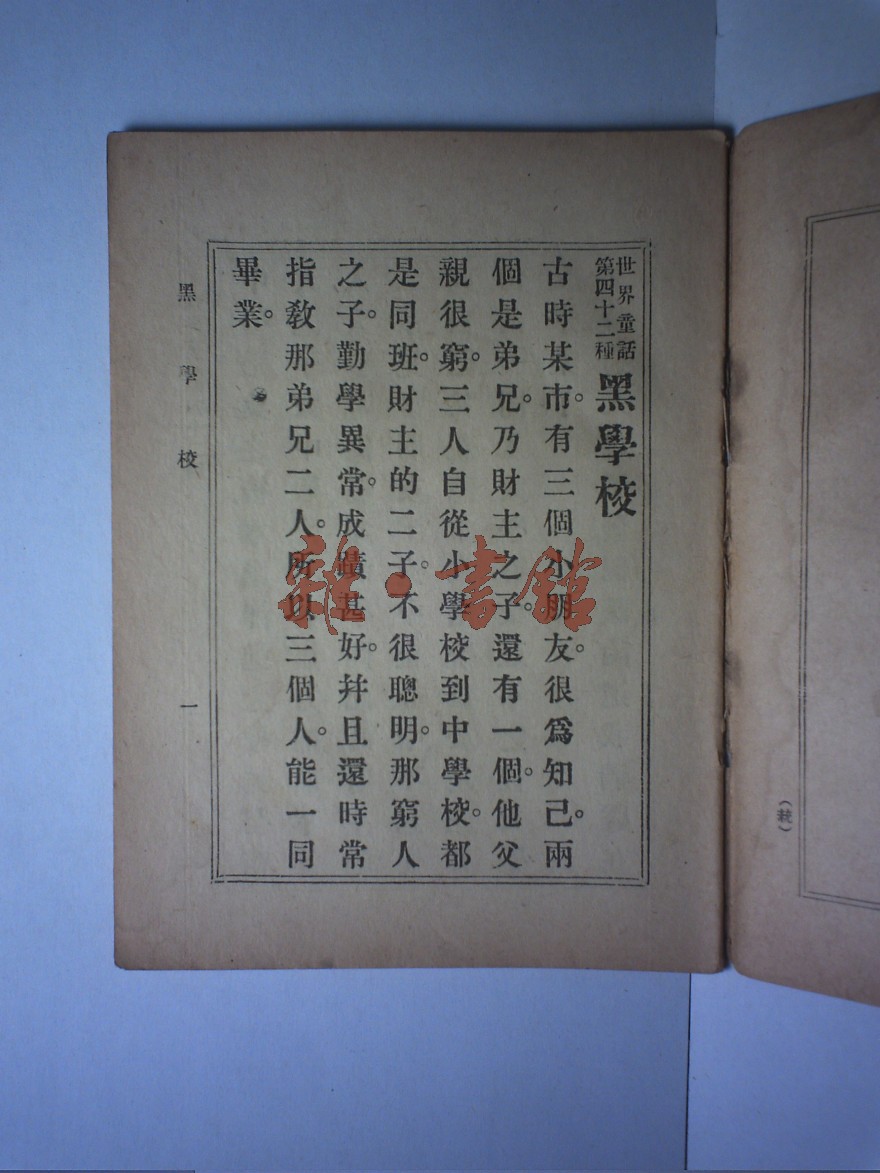 世界童話
第四十二種
黑學校
古時某市。有三個小朋友。很爲知己。兩
個是弟兄。乃財主之子。還有一個。他父
親很窮。三人自從小學校到中學校。都
是同班。財主的二子。不很聰明。那窮人
之子。勤學異常。成蹟甚好。幷且還時常
指教那弟兄二人。所以三個人。能一同
畢業。
黑學校 一
雜·書館